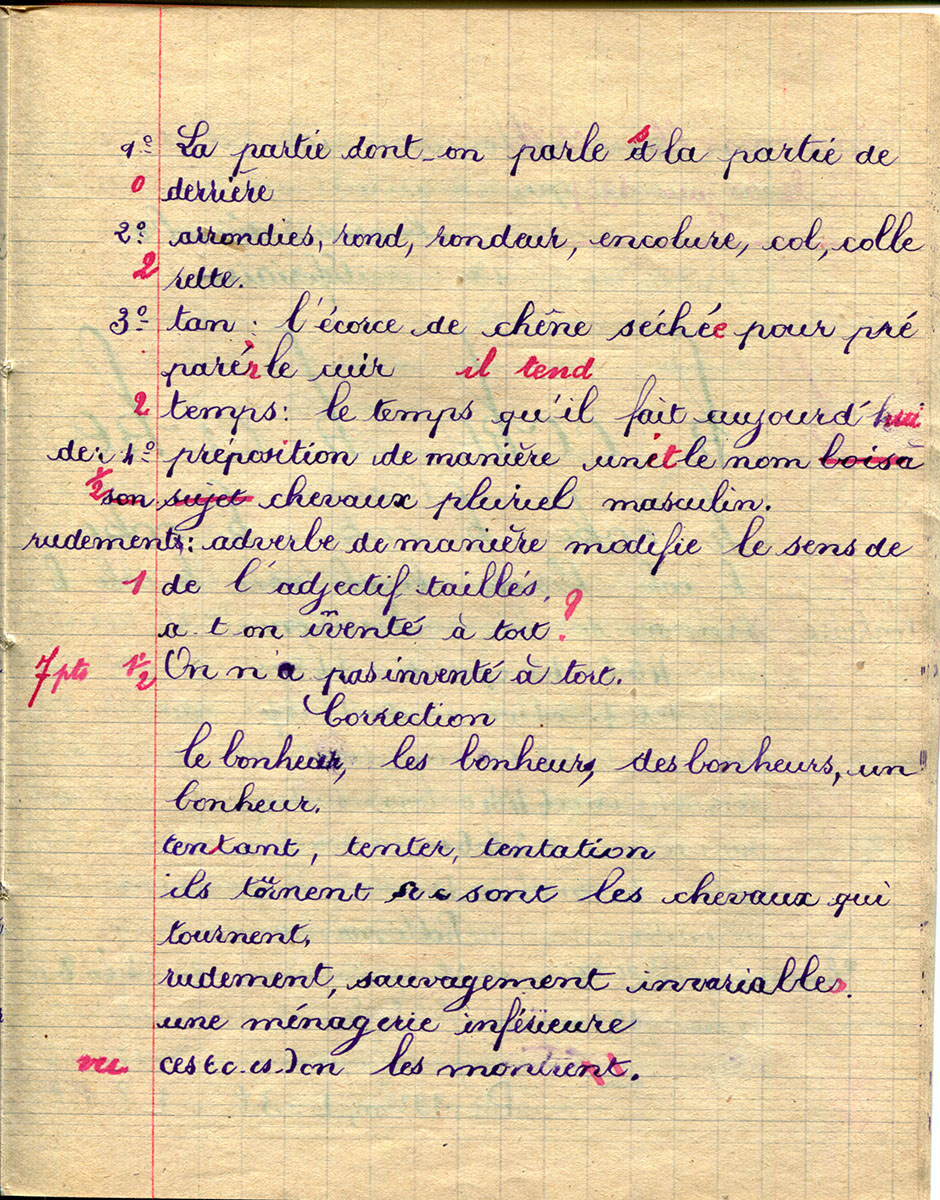 1º La partie dont on parle st la partie de
0 derrière
2º arrondies, rond, rondeur, encolure, col, colle
2 rette.
3º tan : l'écorce de chêne séchée pour pré
parér le cuir il tend
2 temps : le temps qu'il fait aujourd'hui
de : 4º préposition de manière unit le nom bois à
1/2 son sujet chevaux pluriel masculin.
rudements : adverbe de manière modifie le sens de
1 de l'adjectif taillés.
a t on inventé à tort ?
7 pts 1 1/2 On n'a pas inventé à tort.
Correction
le bonheur, les bonheurs, des bonheurs, un
bonheur.
tentant, tenter, tentation
ils tournent ce sont les chevaux qui
tournent,
rudement, sauvagement invariables.
une ménagerie inférieure
vu ces (c.es.) on les montrent.